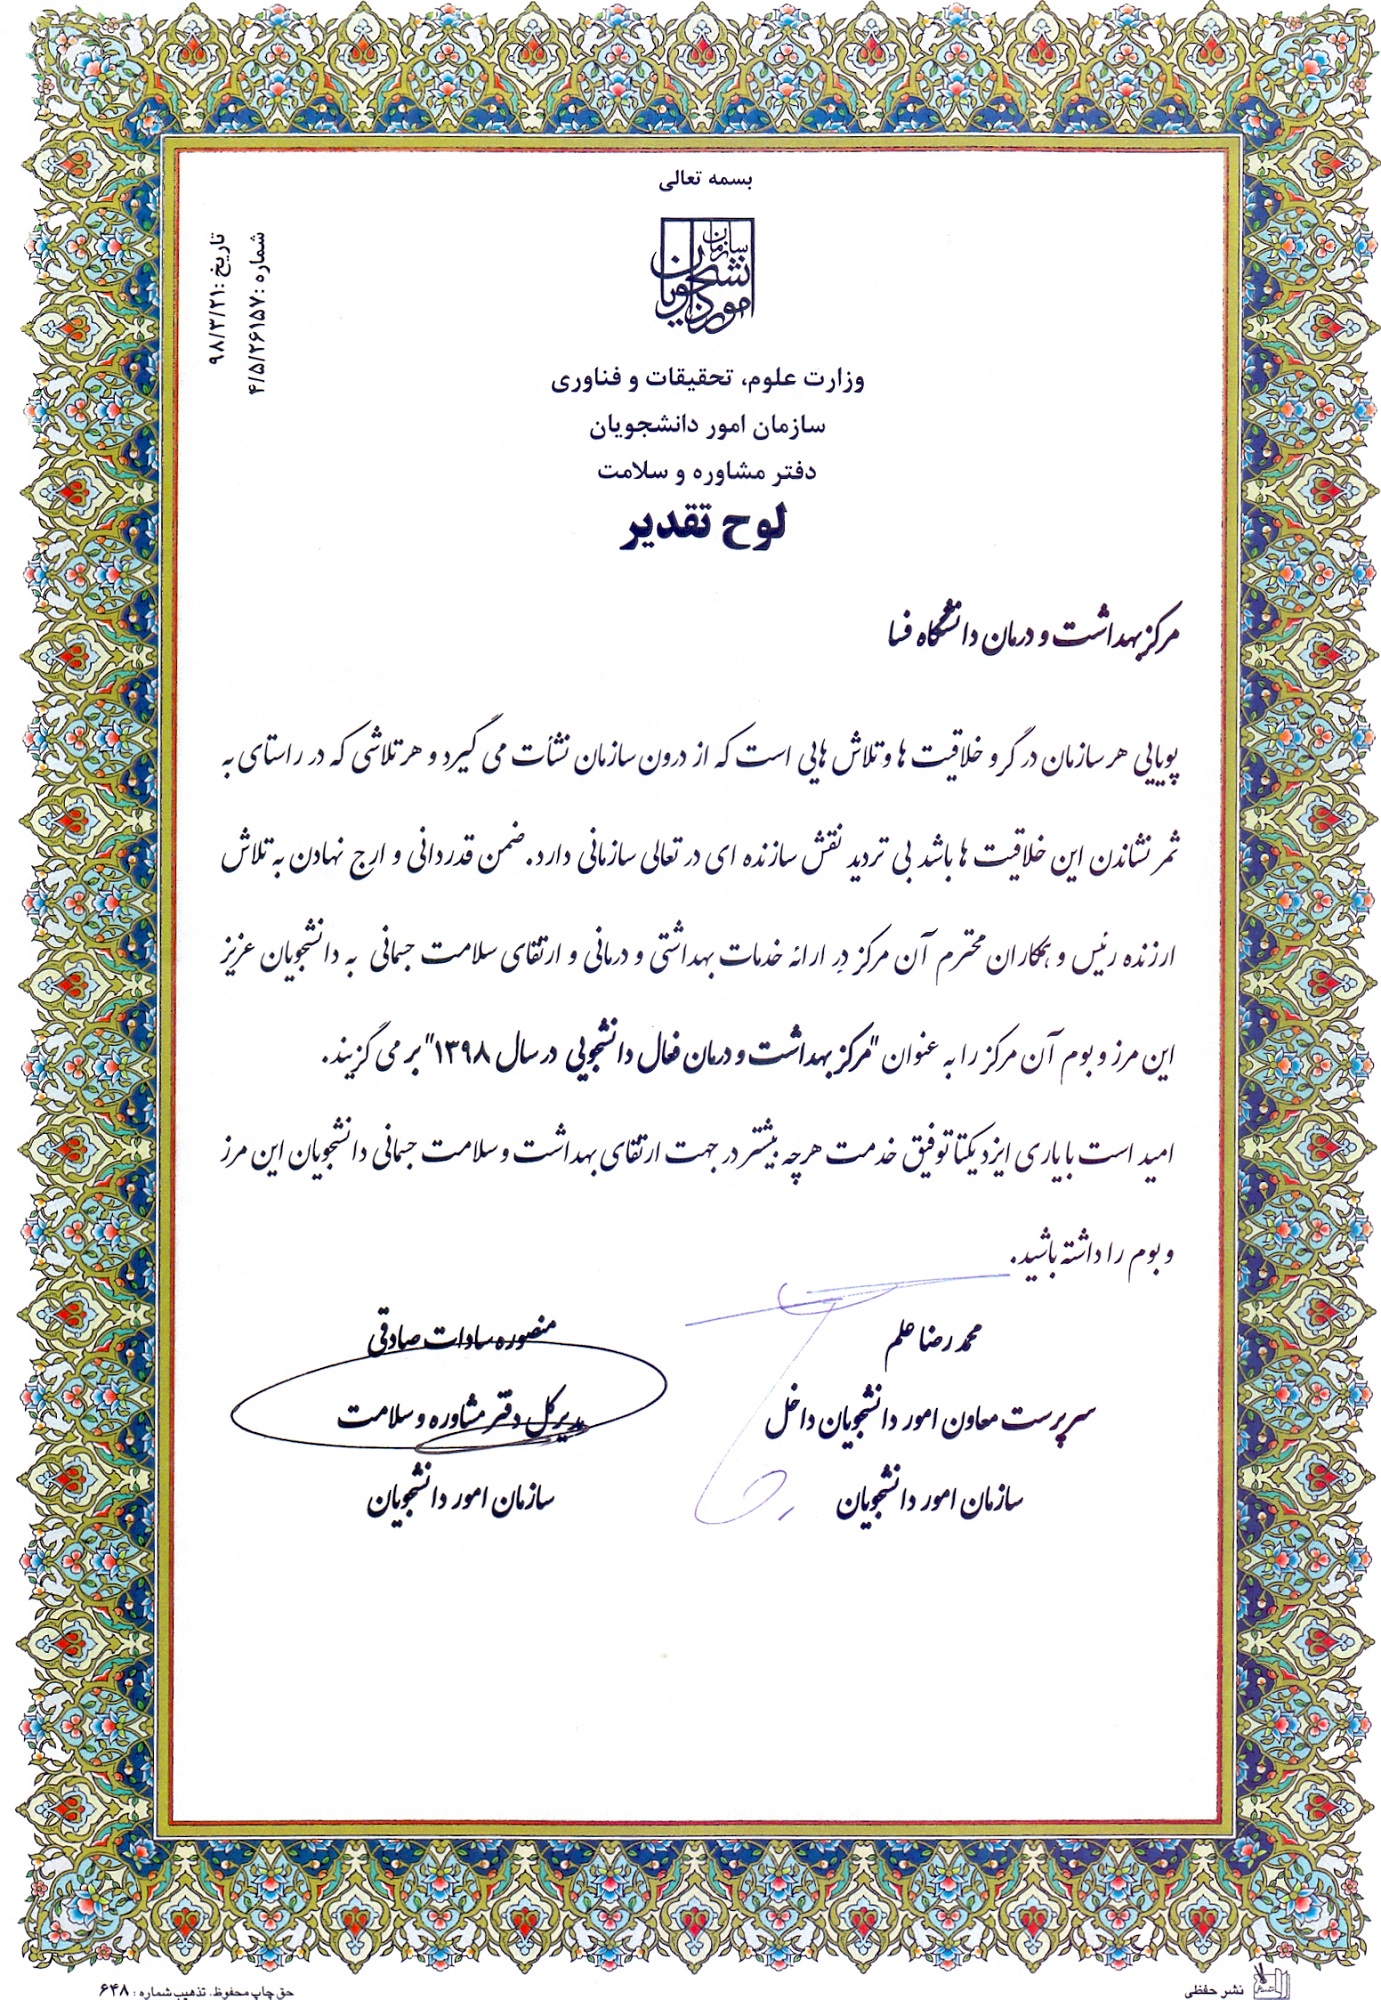 بسمه تعالی
سازمان امور دانشجویان
تاریخ :۹۸/۳/۲۱
شماره :۴/۵/۲۶۱۵۷
وزارت علوم، تحقیقات و فناوری
سازمان امور دانشجویان
دفتر مشاوره و سلامت
لوح تقدیر
مرکز بهداشت و درمان دانشگاه فسا
پویایی هر سازمان در گرو خلاقیت ها و تلاش هایی است که از درون سازمان نشأت می گیرد و هر تلاشی که در راستای به
ثمر نشاندن این خلاقیت ها باشد بی تردید نقش سازنده ای در تعالی سازمانی دارد. ضمن قدردانی و ارج نهادن به تلاش
ارزنده رئیس و همکاران محترم آن مرکز در ارائه خدمات بهداشتی و درمانی و ارتقای سلامت جسمانی به دانشجویان عزیز
این مرز و بوم آن مرکز را به عنوان "مرکز بهداشت و درمان فعال دانشجویی در سال ۱۳۹۸" بر می گزیند.
امید است با یاری ایزد یکتا توفیق خدمت هرچه بیشتر در جهت ارتقای بهداشت و سلامت جسمانی دانشجویان این مرز
و بوم را داشته باشید.
محمد رضا علم
سرپرست معاون امور دانشجویان داخل
سازمان امور دانشجویان
منصوره سادات صادقی
مدیرکل دفتر مشاوره و سلامت
سازمان امور دانشجویان
نشر حفظی
حق چاپ محفوظ. تذهیب شماره : ۶۴۸